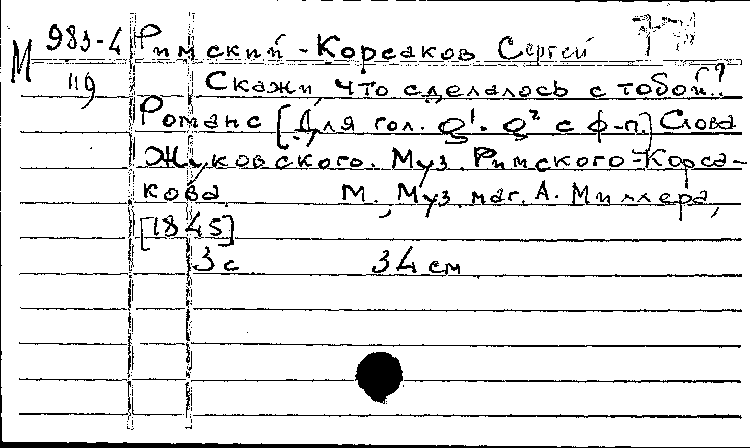 М 983-4 Римский-Корсаков Сергей
119 Скажи, что сделалось с тобой..?
Романс [Для гол. g¹. g² с ф-п.] Слова
Жуковского. Муз. Римского-Корса-
кова. М., Муз. маг. А. Миллера,
[1845]
3 с 34 см